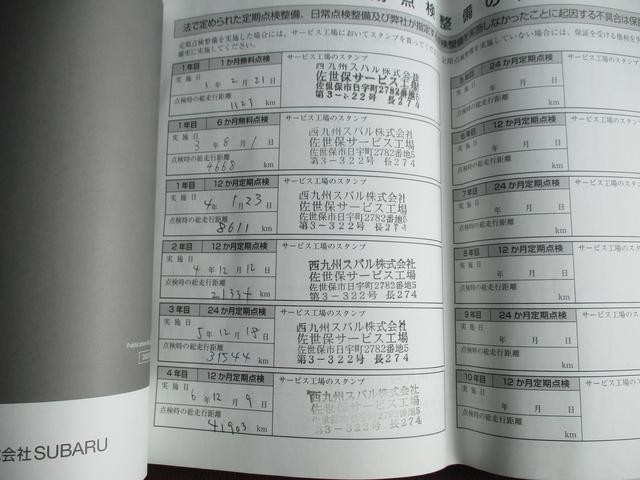 法で定められた定期点検整備、日常点検整備及び弊社が指定す
定期点検整備を実施した場合には、サービス工場においてスタンプを貰ってくだ
確実に実施してください。
1年目 1か月無料点検 サービス工場のスタンプ
実施日 3年 2月 21日
点検時の総走行距離
1123 km
西九州スバル株式会社
佐世保サービス工場
佐世保市日宇町2782番地5
第3-322号 長274
1年目 6か月無料点検 サービス工場のスタンプ
実施日 3年 8月 1日
点検時の総走行距離
4668 km
西九州スバル株式会社
佐世保サービス工場
佐世保市日宇町2782番地5
第3-322号 長274
1年目 12か月定期点検 サービス工場のスタンプ
実施日 4年 1月 23日
点検時の総走行距離
8611 km
西九州スバル株式会社
佐世保サービス工場
佐世保市日宇町2782番地5
第3-322号 長274
2年目 12か月定期点検 サービス工場のスタンプ
実施日 4年 12月 12日
点検時の総走行距離
km
西九州スバル株式会社
佐世保サービス工場
佐世保市日宇町2782番地5
第3-322号 長274
3年目 24か月定期点検 サービス工場のスタンプ
実施日 5年 12月 18日
点検時の総走行距離
31544 km
西九州スバル株式会社
佐世保サービス工場
佐世保市日宇町2782番地5
第3-322号 長274
4年目 12か月定期点検 サービス工場のスタンプ
実施日 6年 12月 9日
点検時の総走行距離
41903 km
西九州スバル株式会社
佐世保サービス工場
佐世保市日宇町2782番地5
第3-322号 長274
点検整備の
整備を実施しなかったことに起因する不具合は保
整備を実施していない場合には、保証を受ける権利を
5年目 24か月定期点検
実施日 年 月 日
点検時の総走行距離
km
6年目 12か月定期点検
実施日 年 月 日
点検時の総走行距離
km
7年目 24か月定期点検
実施日 年 月 日
点検時の総走行距離
km
8年目 12か月定期点検
実施日 年 月 日
点検時の総走行距離
km
9年目 24か月定期点検
実施日 年 月 日
点検時の総走行距離
km
10年目 12か月定期点検
実施日 年 月 日
点検時の総走行距離
km
会社 SUBARU